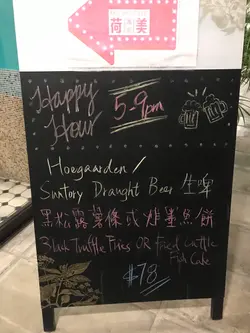 荷美
Happy
Hour
5-9pm
Hoegaarden /
Suntory Draught Beer 生啤
黑松露薯條 或 炸墨魚餅
Black Truffle Fries OR fried Cuttle
Fish Cake
$78